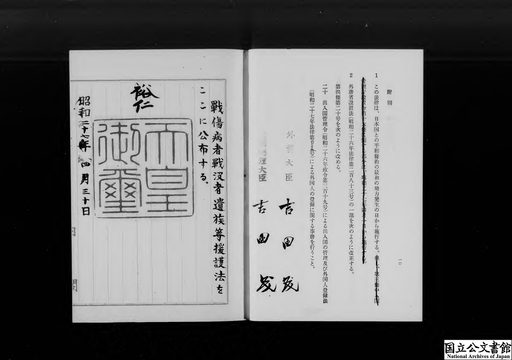 附則
1 この法律は、日本国との平和条約の最初の効力発生の日から施行する。
2 外務省設置法(昭和二十六年法律第二百八十三号)の一部を次のように改正する。
第四條第二十号を次のように改める。
二十 出入国管理令(昭和二十六年政令第三百十九号)による出入国の管理及び外国人登録法
(昭和二十七年法律第百二十五号)による外国人の登録に関する事務を行うこと。
外務大臣 吉田茂
総理大臣 吉田茂
戰傷病者戰沒者遺族等援護法を
ここに公布する。
裕仁
天皇御璽
昭和二十七年四月三十日
国立公文書館
National Archives of Japan